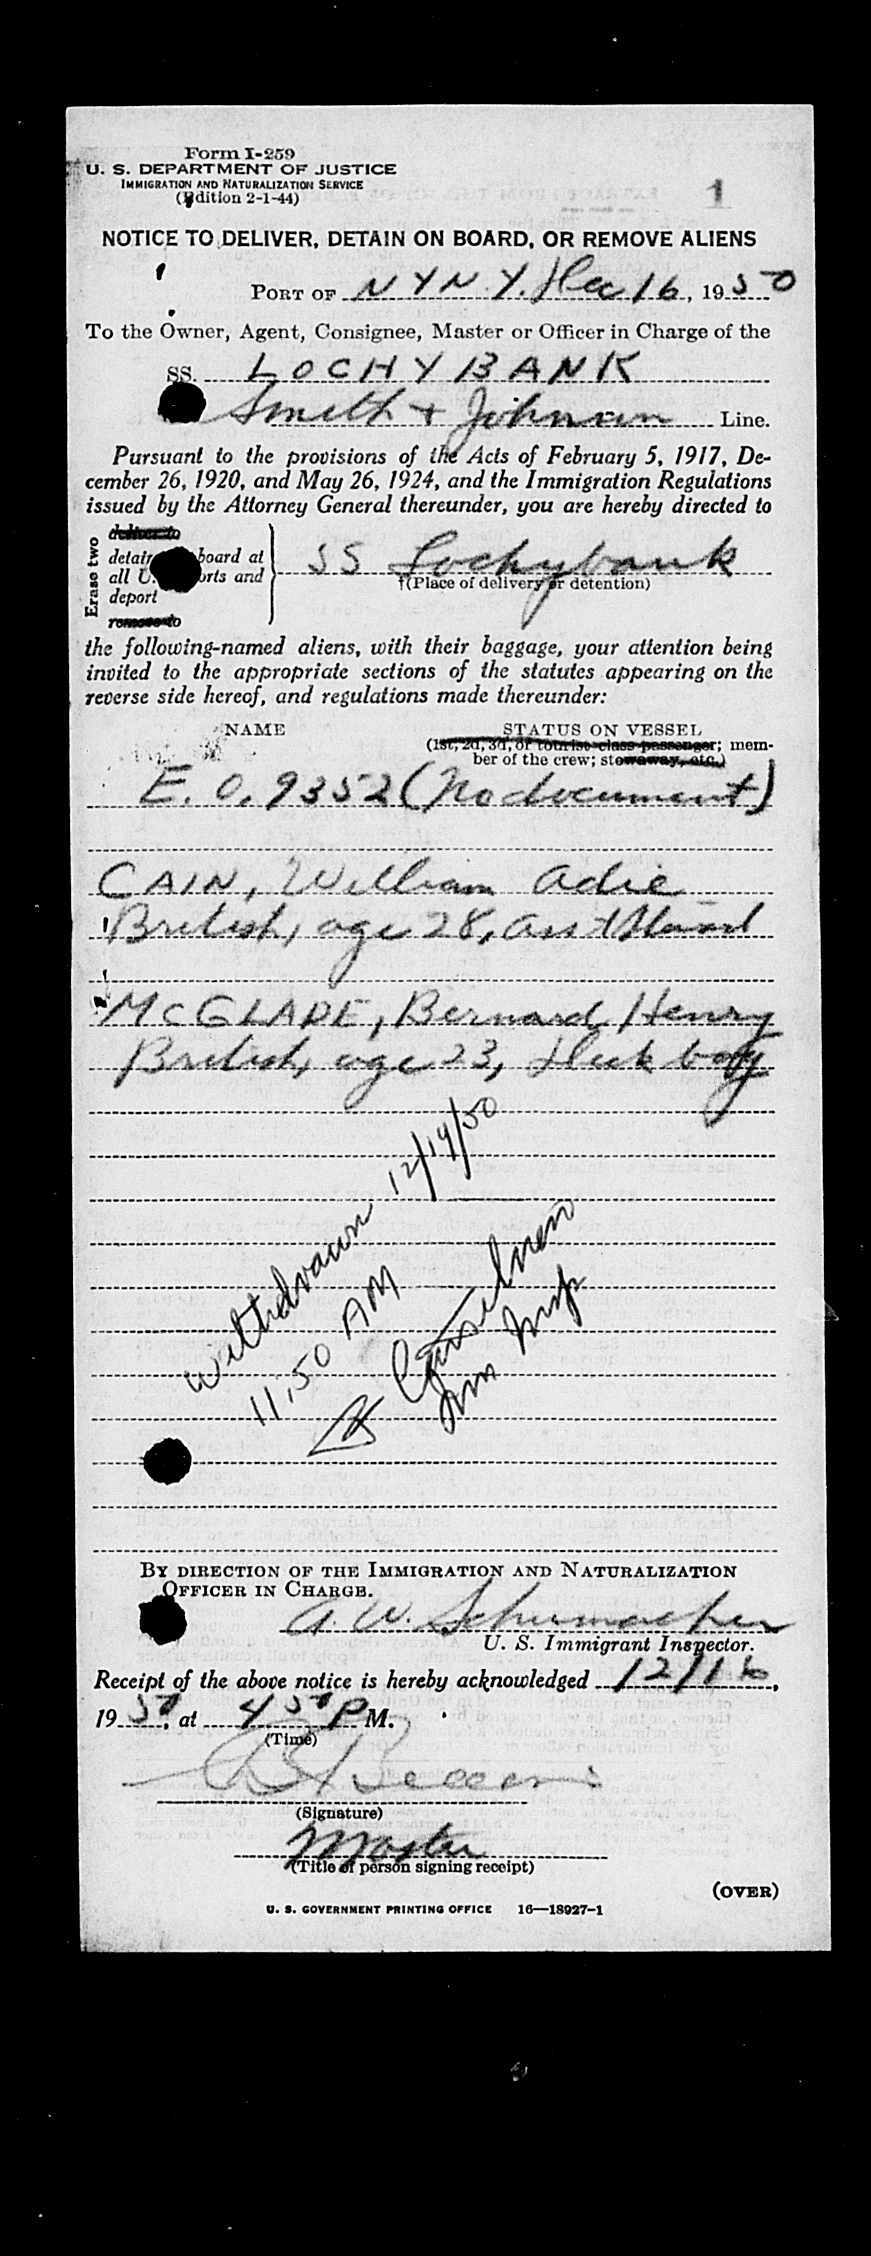 Form I-259
U. S. DEPARTMENT OF JUSTICE
IMMIGRATION AND NATURALIZATION SERVICE
(Edition 2-1-44)
1
NOTICE TO DELIVER, DETAIN ON BOARD, OR REMOVE ALIENS
PORT OF N Y N. Y. Dec 16, 1950
To the Owner, Agent, Consignee, Master or Officer in Charge of the
SS. LOCHYBANK
Smith + Johnson Line.
Pursuant to the provisions of the Acts of February 5, 1917, De-
cember 26, 1920, and May 26, 1924, and the Immigration Regulations
issued by the Attorney General thereunder, you are hereby directed to
Erase two
deliver to
detain board at
all U. orts and
deport
remove to
SS Lochybank
†(Place of delivery or detention)
the following-named aliens, with their baggage, your attention being
invited to the appropriate sections of the statutes appearing on the
reverse side hereof, and regulations made thereunder:
NAME
STATUS ON VESSEL
(1st, 2d, 3d, or tourist class passenger; mem-
ber of the crew; stowaway, etc.)
E. O. 9352 (No document)
CAIN, William Adie
British, age 28, Asst Steward
McGLADE, Bernard Henry
British, age 23, Deck boy
Withdrawn 12/19/50
11,50 AM
Imm Insp
BY DIRECTION OF THE IMMIGRATION AND NATURALIZATION
OFFICER IN CHARGE.
A. W. Schumacher
U. S. Immigrant Inspector.
Receipt of the above notice is hereby acknowledged 12/16,
1950, at 4 50 P M.
(Time)
(Signature)
Master
(Title of person signing receipt)
(OVER)
U. S. GOVERNMENT PRINTING OFFICE 16—18927-1